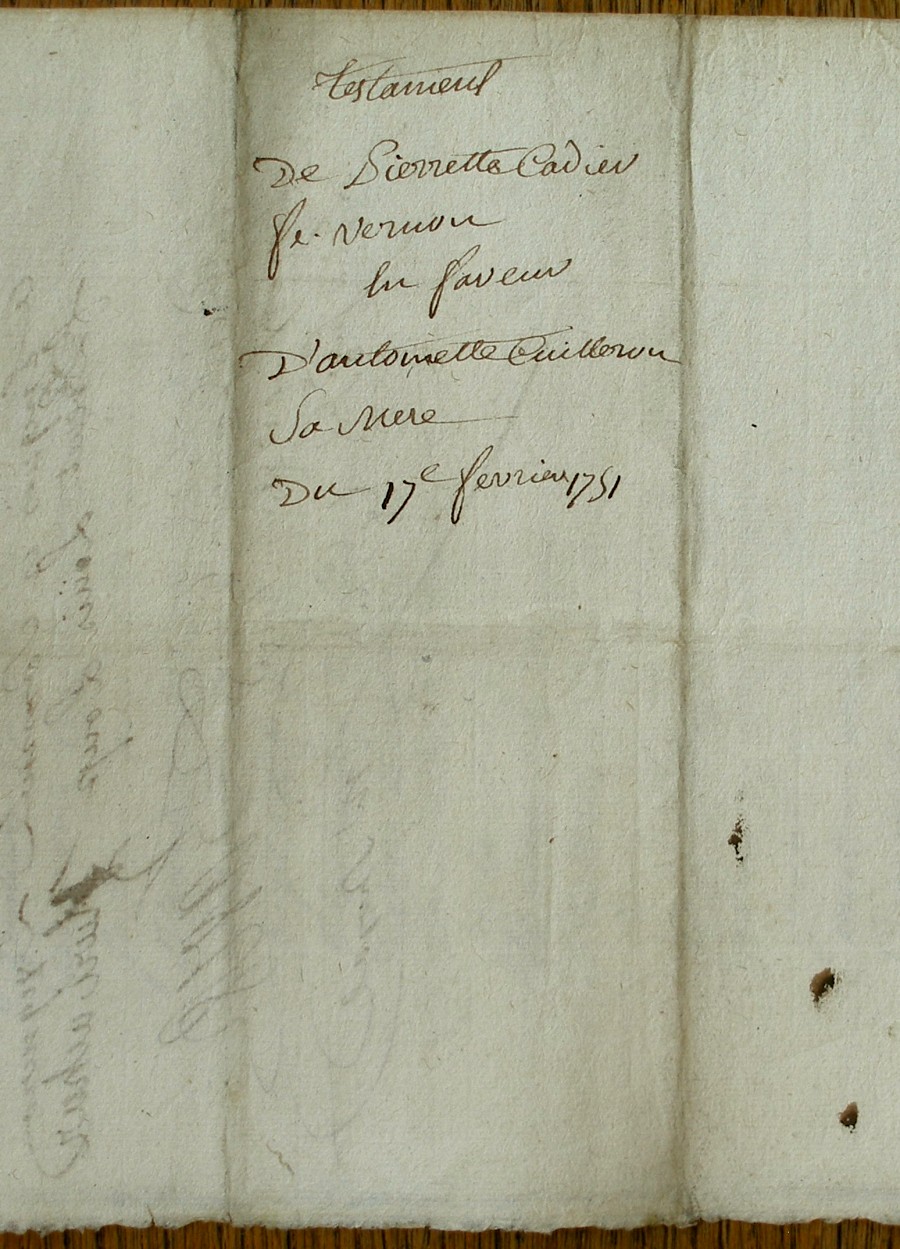 testament
De Pierrette Cadier
fe. vernon
En faveur
D'antoinette Cuilleron
Sa Mere
Du 17e fevrier 1751